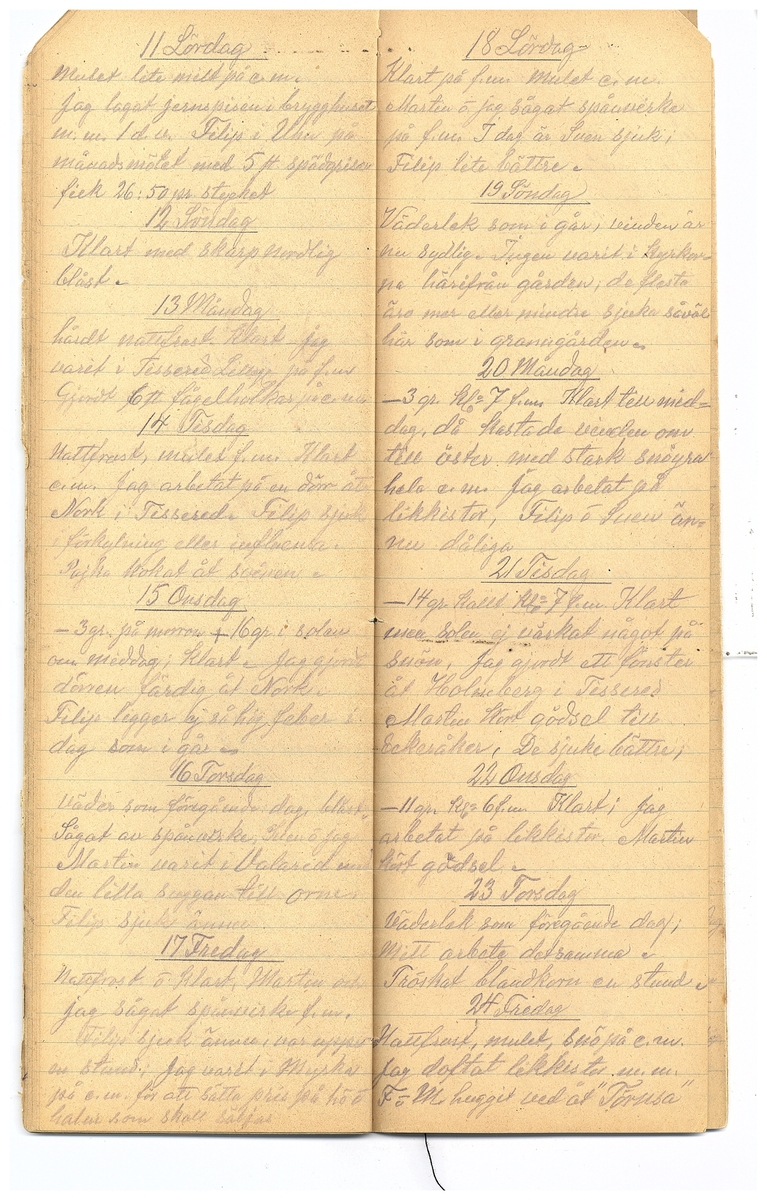 11 Lördag
Mulet lite milt på e.m.
Jag lagat jernspisen i brygghuset
m.m. Filip i Ulva på
månadsmötet med 5 st spädgrisar
fick 26:50 pr. stycket
12 Söndag
Klart med skarp nordlig
blåst.
13 Måndag
hårdt nattfrost. Klart jag
varit i Tissered på f.m
Gjordt 6 st fågelholkar på e.m
14 Tisdag
Nattfrost, mulet f.m. Klart
e.m. Jag arbetat på en dörr åt
Nork i Tissered. Filip sjuk
förkylning eller influensa.
Pajka kokat åt svinen.
15 Onsdag
-3 gr. på morron + 16 gr i solen
om middag; Klart. Jag gjordt
dörren färdig åt Nork.
Filip ligger ej så hög feber i
dag som i går
16 Torsdag
Väder som föregående dag, blåst
Sågat av spånvirke, Sven ö jag
Martin varit i Valarid med
den lilla suggan till orne.
Filip sjuk ännu
17 Fredag
Nattfrost ö Klart, Martin och
jag sågat spånvirke f.m.
Filip sjuk ännu, var uppe
en stund, Jag varit i
på e.m. för att sätta pris på hö ö
halm som skall säljas
18 Lördag
Klart på f.m. mulet e.m.
Martin ö jag sågat spånvirke
på f.m. I dag är Sven sjuk;
Filip lite bättre.
19 Söndag
Väderlek som i går, vinden är
nu sydlig. Ingen varit i kyrkor-
na härifrån gården, de flesta
äro mer eller mindre sjuka såväl
här som i granngården.
20 Måndag
-3 gr. Kl= 7 f.m. Klart till mid=
dag, då kastade vinden om
till öster med stark snöyra
hela e.m. Jag arbetat på
likkistor, Filip ö Sven än=
nu dåliga
21 Tisdag
-14 gr. kallt Kl= 7 f.m. Klart
men solen ej värkat något på
snön. Jag gjordt ett fönster
åt Holmberg i Tissered
Martin kört gödsel till
Eckeråker, De sjuke bättre;
22 Onsdag
-11 gr. Kl= 6 f.m. Klart; Jag
arbetat på likkistor. Martin
kört gödsel.
23 Torsdag
Väderlek som föregående dag;
Mitt arbete detsamma.
Tröskat blandkorn en stund.
24 Fredag
Nattfrost, mulet, snö på e.m.
Jag doftat likkistor m.m.
F ö M. huggit ved åt "Tornsa"